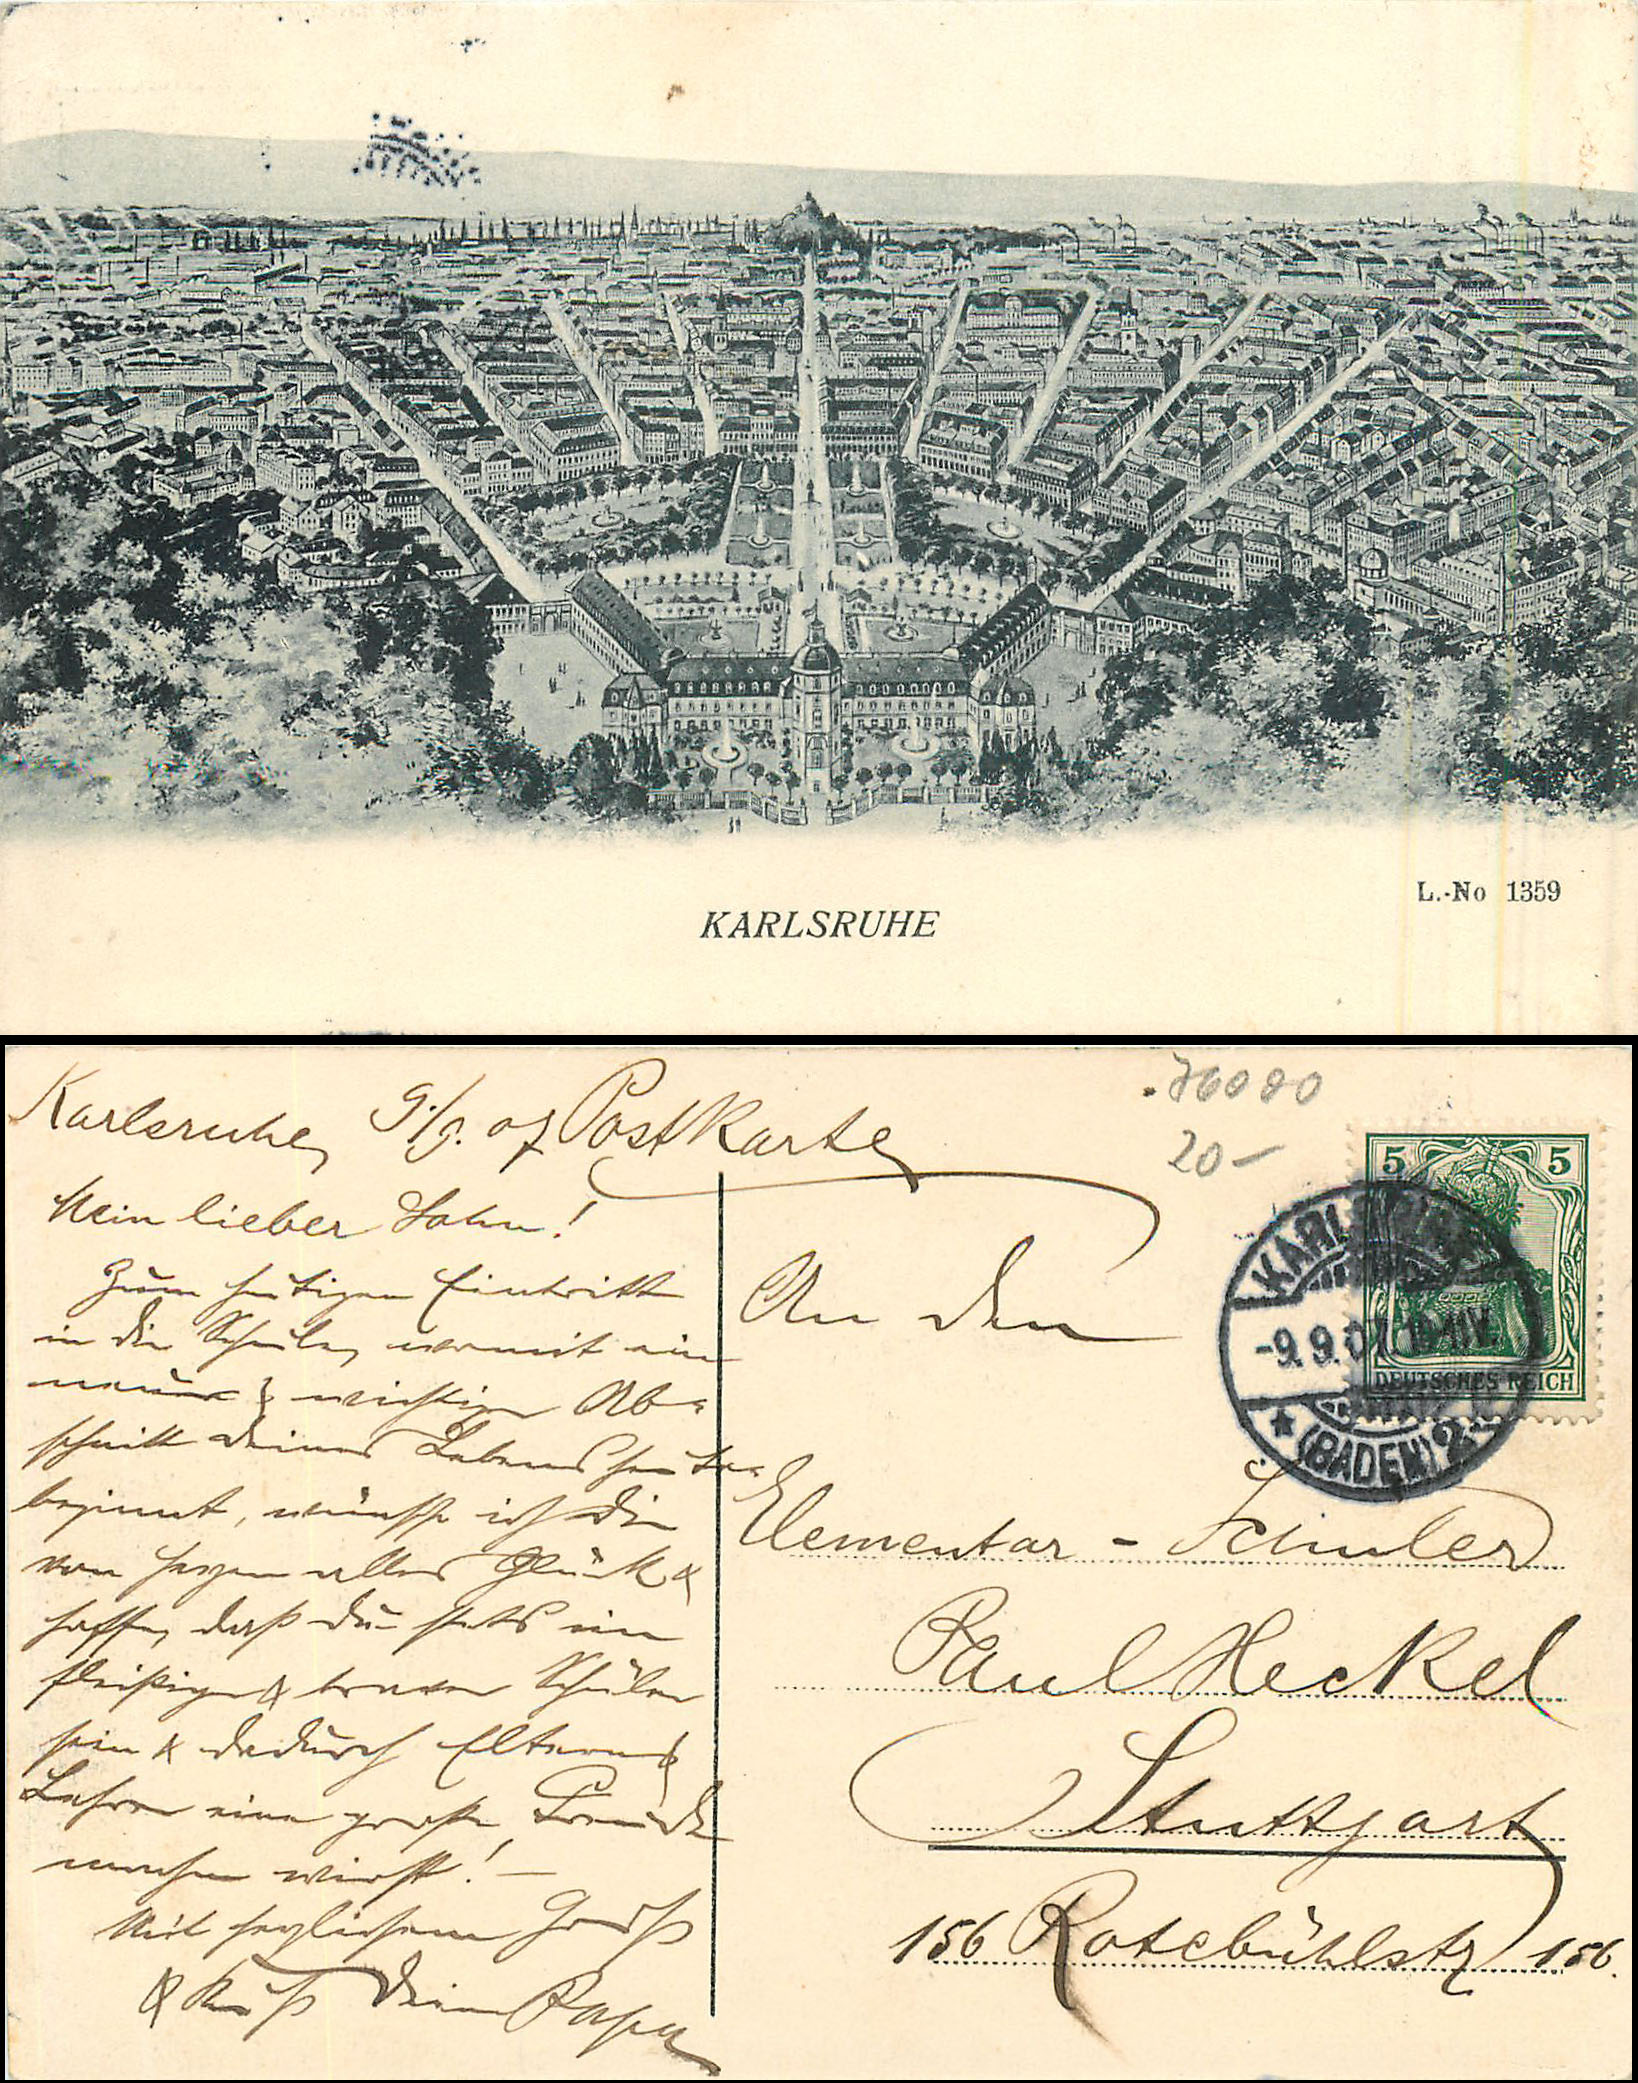 L.-No 1359
KARLSRUHE
76000
20-
Karlsruhe, 9./9. 07 Postkarte
Mein lieber Sohn!
Zum heutigen Eintritt
in die Schule, womit ein
neuer & wichtiger Ab-
schnitt deines Lebens heute
beginnt, wünsche ich Dir
von Herzen alles Glück &
hoffe, daß Du stets ein
fleißiger & braver Schüler
sein & dadurch Eltern &
Lehrer eine große Freude
machen wirst! -
Mit herzlichem Gruß
& Kuß Dein Papa
5 5
DEUTSCHES REICH
KARLSRUHE
-9.9.07.
(BADEN) 2
An den
Elementar-Schüler
Paul Heckel
Stuttgart
156 Rotebühlstr 156.